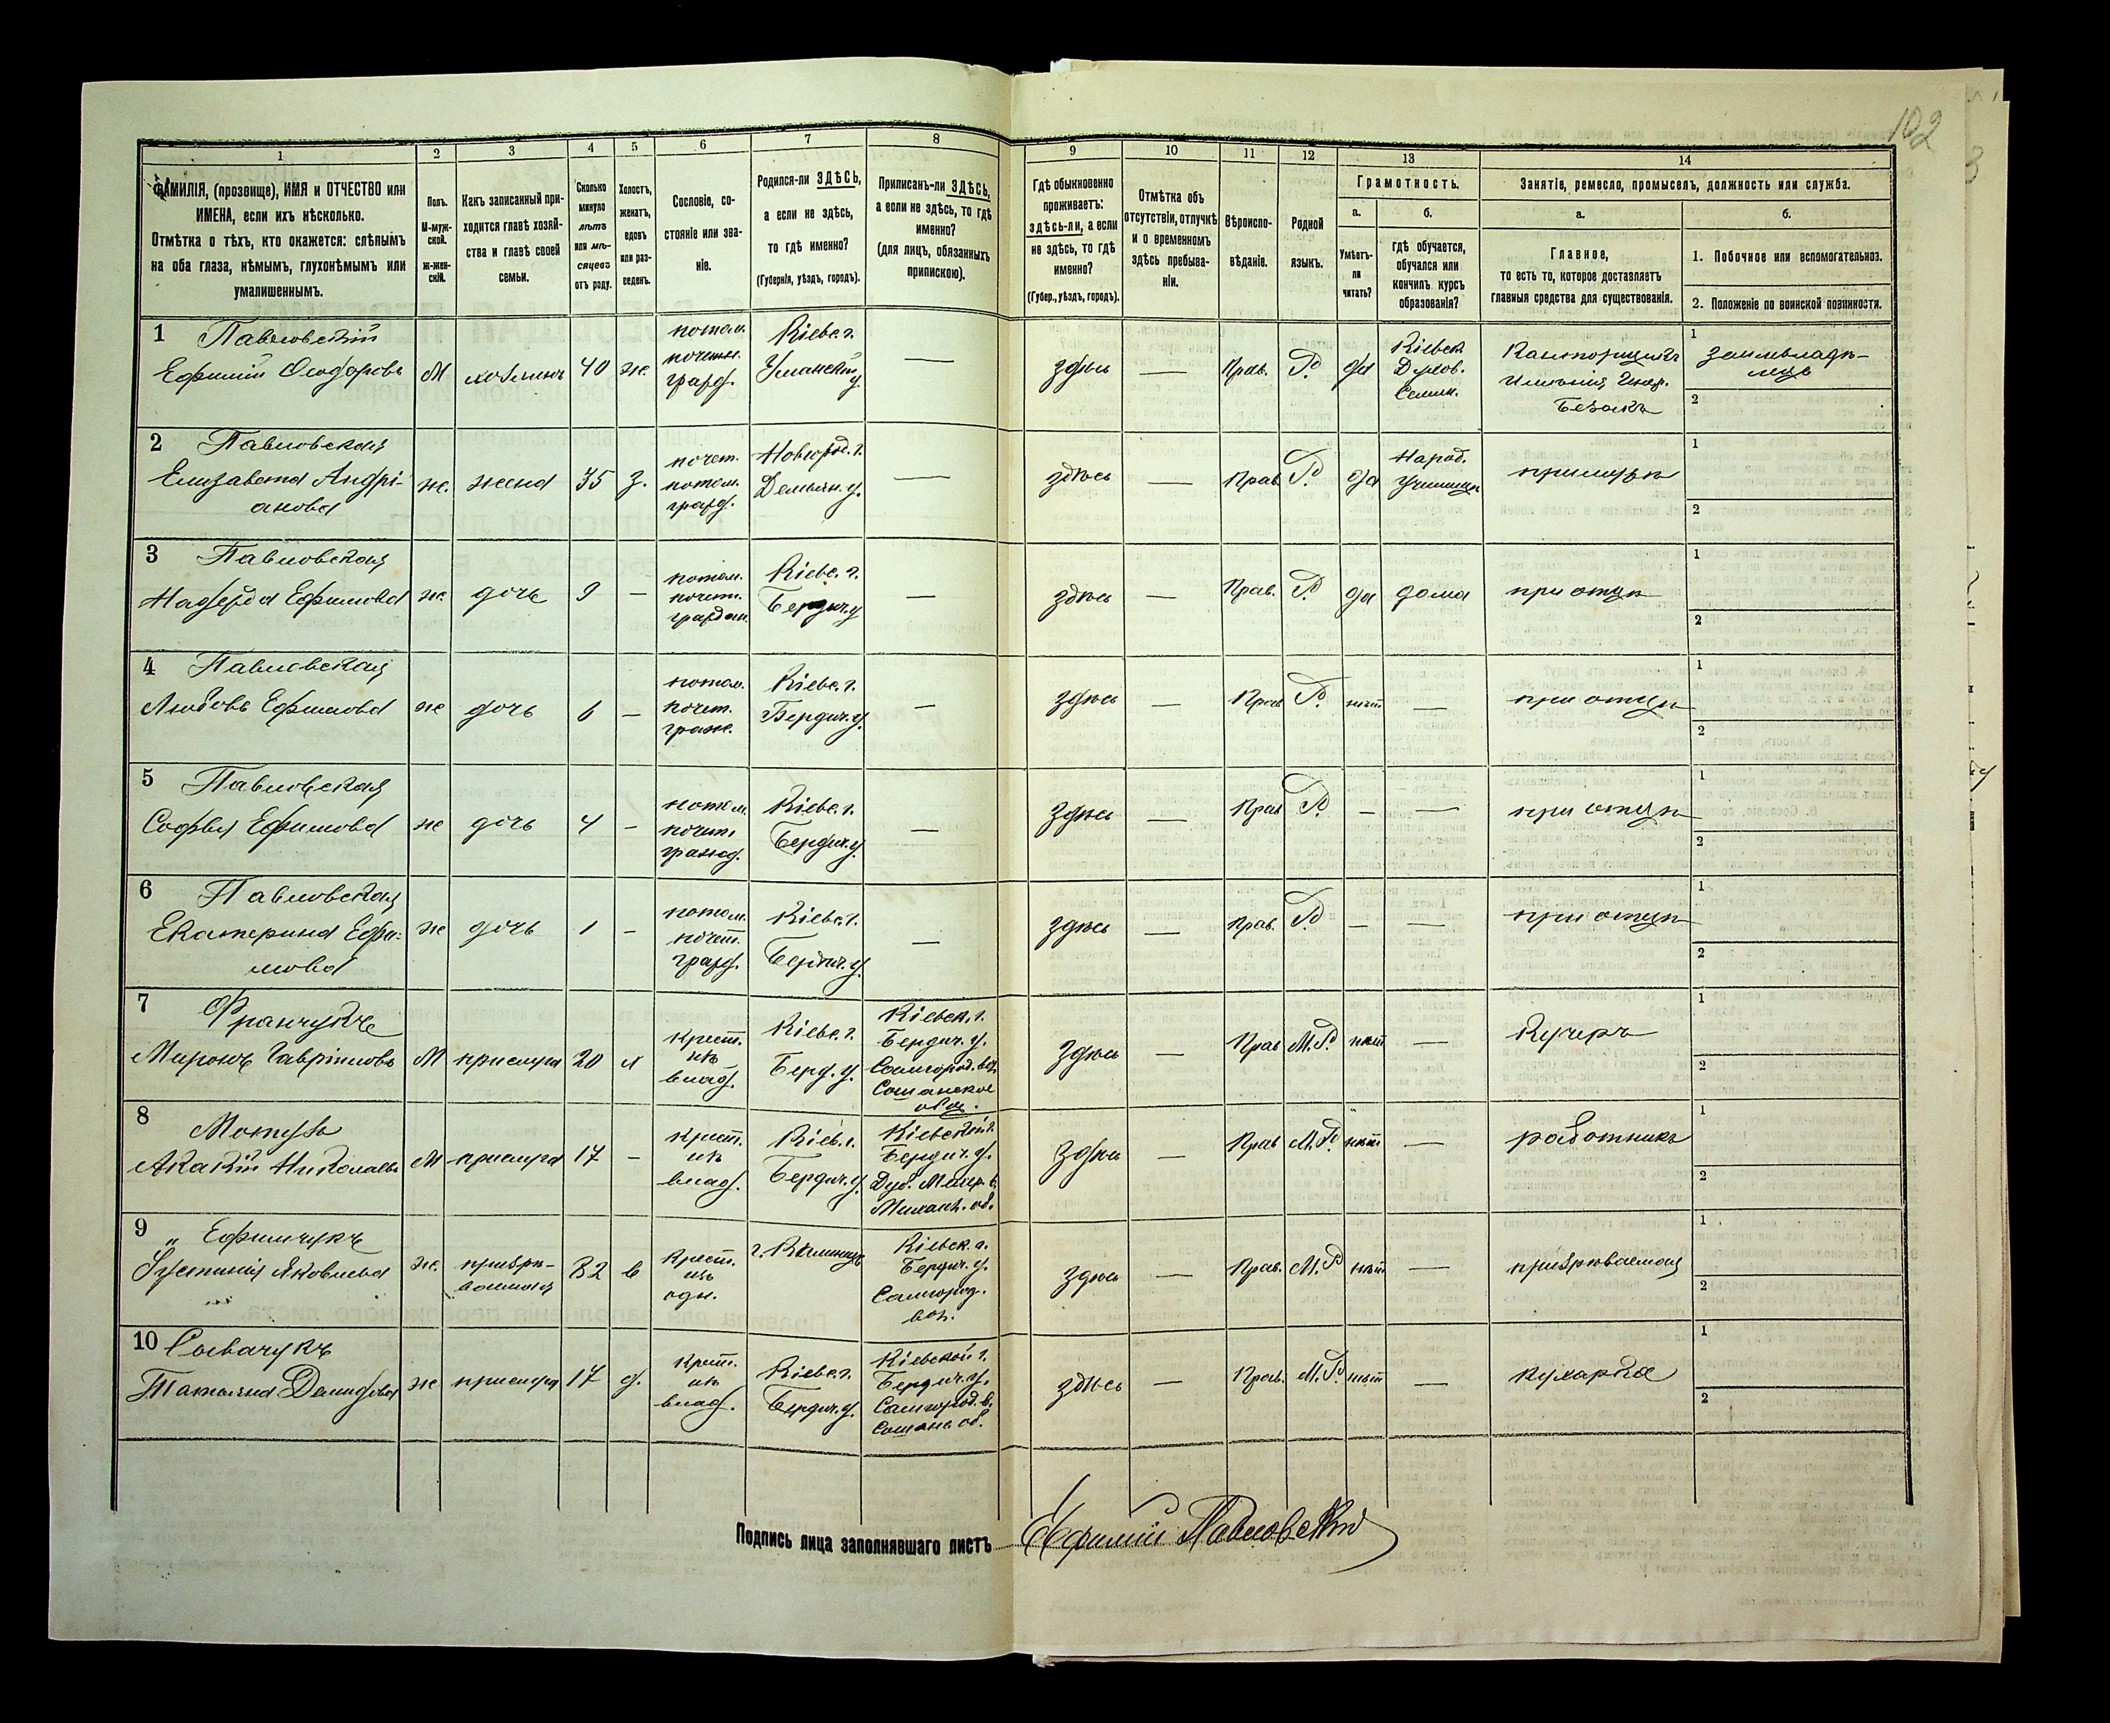 102
1
2
3
4
5
6
7
8
9
10
11
12
13
14
ФАМИЛІЯ, (прозвище), ИМЯ и ОТЧЕСТВО или
ИМЕНА, если ихъ нѣсколько.
Отмѣтка о тѣхъ, кто окажется: слѣпымъ
на оба глаза, нѣмымъ, глухонѣмымъ или
умалишеннымъ.
Полъ.
М-муж-
ской.
ж-жен-
скій.
Какъ записанный при-
ходится главѣ хозяй-
ства и главѣ своей
семьи.
Сколько
минуло
лѣтъ
или мѣ-
сяцевъ
отъ роду.
Холостъ,
женатъ,
вдовъ
или раз-
веденъ.
Сословіе, со-
стояніе или зва-
ніе.
Родился-ли ЗДѢСЬ,
а если не здѣсь,
то гдѣ именно?
(Губернія, уѣздъ, городъ).
Приписанъ-ли ЗДѢСЬ,
а если не здѣсь, то гдѣ
именно?
(для лицъ, обязанныхъ
припискою).
Гдѣ обыкновенно
проживаетъ:
здѣсь-ли, а если
не здѣсь, то гдѣ
именно?
(Губер., уѣздъ, городъ).
Отмѣтка объ
отсутствіи, отлучкѣ
и о временномъ
здѣсь пребыва-
ніи.
Вѣроиспо-
вѣданіе.
Родной
языкъ.
Грамотность.
а.
б.
Умѣетъ-
ли
читать?
гдѣ обучается,
обучался или
кончилъ курсъ
образованія?
Занятіе, ремесло, промыселъ, должность или служба.
а.
б.
Главное,
то есть то, которое доставляетъ
главныя средства для существованія.
1. Побочное или вспомогательноэ.
2. Положеніе по воинской повинности.
1 Павловскій
Ефимій Ѳеодоровъ
М
хозяинъ
40
же.
потом.
почетн.
гражд.
Кіевс. г.
Уманскій
у.
—
здѣсь
—
Прав.
Р.
да
Кіевск.
Духов.
Семин.
Конторщикъ
Имѣнія
Безакъ
1
землевладѣ-
лецъ
2
2 Павловская
Елизавета Андрі-
анова
же.
жена
35
з.
почет.
потом.
гражд.
Новгород. г.
Демьян. у.
—
здѣсь
—
Прав.
Р.
да
Народ.
Училищѣ
при мужѣ
1
2
3 Павловская
Надежда Ефимова
же.
дочь
9
—
потом.
почет.
граждан.
Кіевс. г.
Бердич. у
—
здѣсь
—
Прав.
Р.
да
дома
при отцѣ
1
2
4 Павловская
Любовь Ефимова
же
дочь
6
—
потом.
почет.
граж.
Кіевс. г.
Бердич. у.
—
здѣсь
—
Прав
Р.
нѣт
—
при отцѣ
1
2
5 Павловская
Софья Ефимова
же
дочь
4
—
потом.
почет.
гражд.
Кіевс. г.
Бердич. у.
—
здѣсь
—
Прав
Р.
—
—
при отцѣ
1
2
6 Павловская
Екатерина Ефи-
мова
же
дочь
1
—
потом.
почет.
гражд.
Кіевс. г.
Бердич. у.
—
здѣсь
—
Прав.
Р.
—
—
при отцѣ
1
2
7 Франчукъ
Миронъ Гавріиловъ
М
прислуга
20
х
Крест.
изъ
влад.
Кіевс. г.
Берд. у.
Кіевск. г.
Бердич. у.
Самгород. вол.
Сошанское
общ.
здѣсь
—
Прав
М.Р.
нѣт
—
Кучеръ
1
2
8
Акакій Николаевъ
М
прислуга
17
—
крест.
изъ
влад.
Кіев. г.
Бердич. у.
Кіевской г.
Бердич. у.
здѣсь
—
Прав
М.Р.
нѣт
—
работникъ
1
2
9 Ефимчукъ
Яковлева
же.
призрѣ-
ваемая
82
в
Крест.
изъ
одн.
Кіевск. г.
Бердич. у.
Самгород.
вол.
здѣсь
—
Прав.
М.Р
нѣт
—
призрѣваемая
1
2
10
Татьяна Демидова
же
прислуга
17
д.
Крест.
изъ
влад.
Кіевс. г.
Бердич. у.
Кіевской г.
Бердич. у.
Самгород. в.
Сошанс. об.
здѣсь
—
Прав.
М.Р.
нѣт
—
кухарка
1
2
Подпись лица заполнявшаго листъ
Ефимій Павловскій